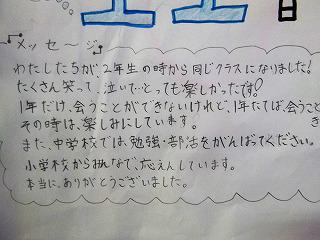 メッセージ
わたしたちが、2年生の時から同じクラスになりました!
たくさん笑って、泣いて…とっても楽しかったです!
1年だけ、会うことができないけれど、1年たてば、会うこと
その時は、楽しみにしています。
また、中学校では、勉強・部活をがんばってください。
小学校からみんなで、応えんしています。
本当に、ありがとうございました。